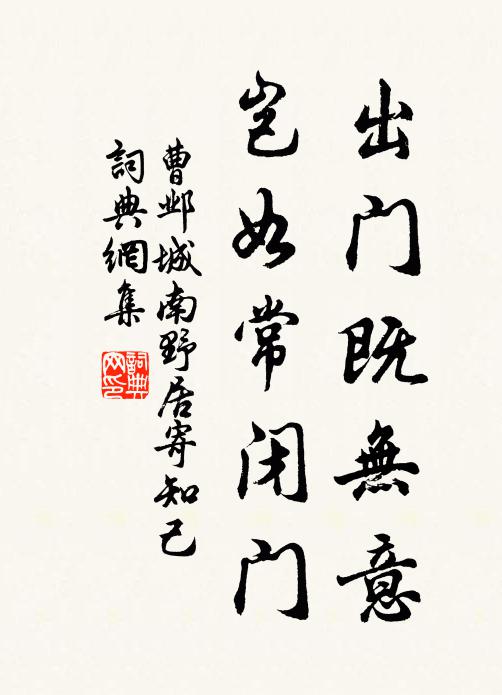 出门既無意
岂如常闭门
曹邺城南野居寄知己
詞典網集
詞典網印